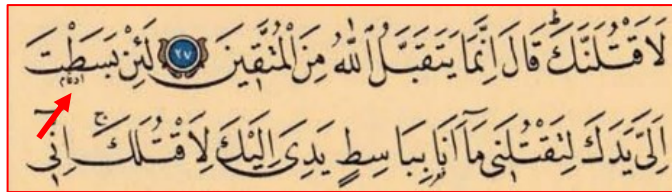 لَاَقْتُلَنَّكَؕ قَالَ اِنَّمَا يَتَقَبَّلُ اللّٰهُ مِنَ الْمُتَّق۪ينَ ٢٧ لَئِنْ بَسَطْتَ
ادغام
اِلَيَّ يَدَكَ لِتَقْتُلَن۪ي مَٓا اَنَا۬ بِبَاسِطٍ يَدِيَ اِلَيْكَ لِاَقْتُلَكَۚ اِنّ۪ٓي